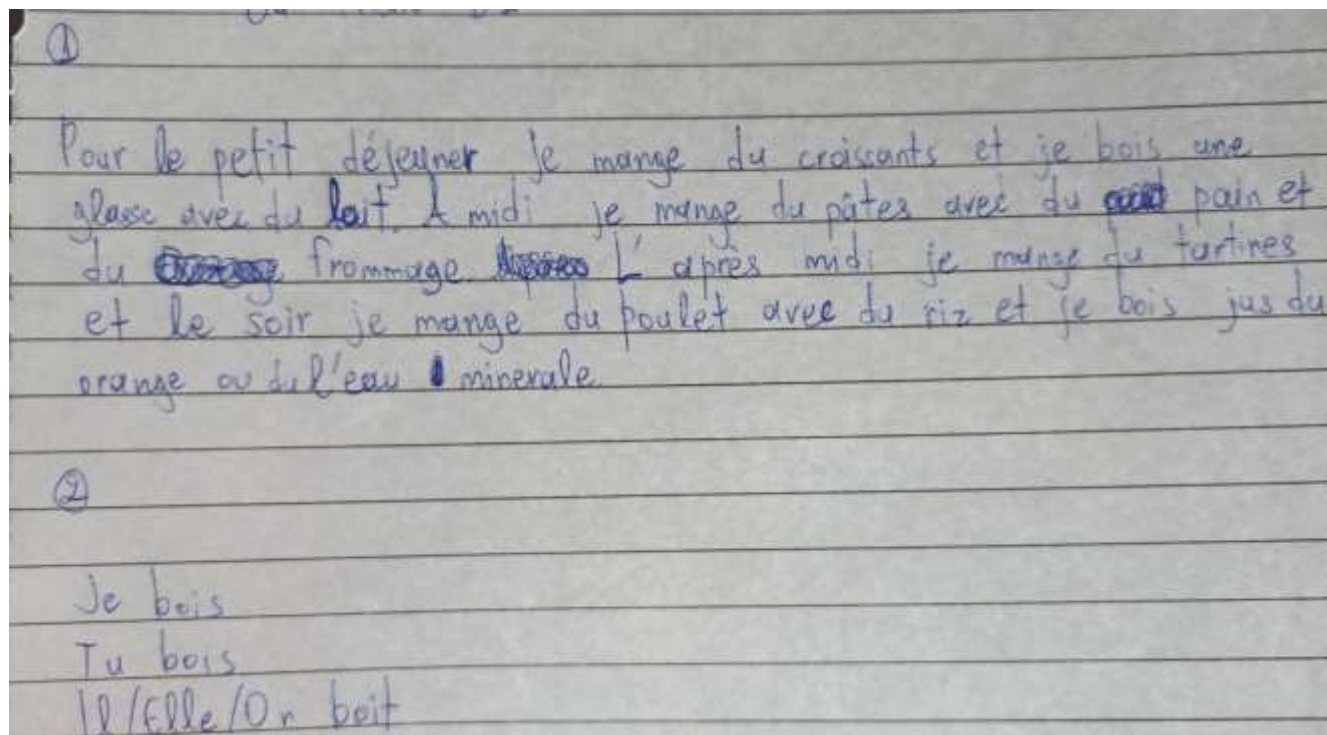 ①
Pour le petit déjeuner je mange du croissants et je bois une
glasse avec du lait. A midi je mange du pâtes avec du pain et
du frommage L'après midi je mange du tartines
et le soir je mange du poulet avec du riz et je bois jus du
orange ou du l'eau minerale.
②
Je bois
Tu bois
Il/Elle/On boit